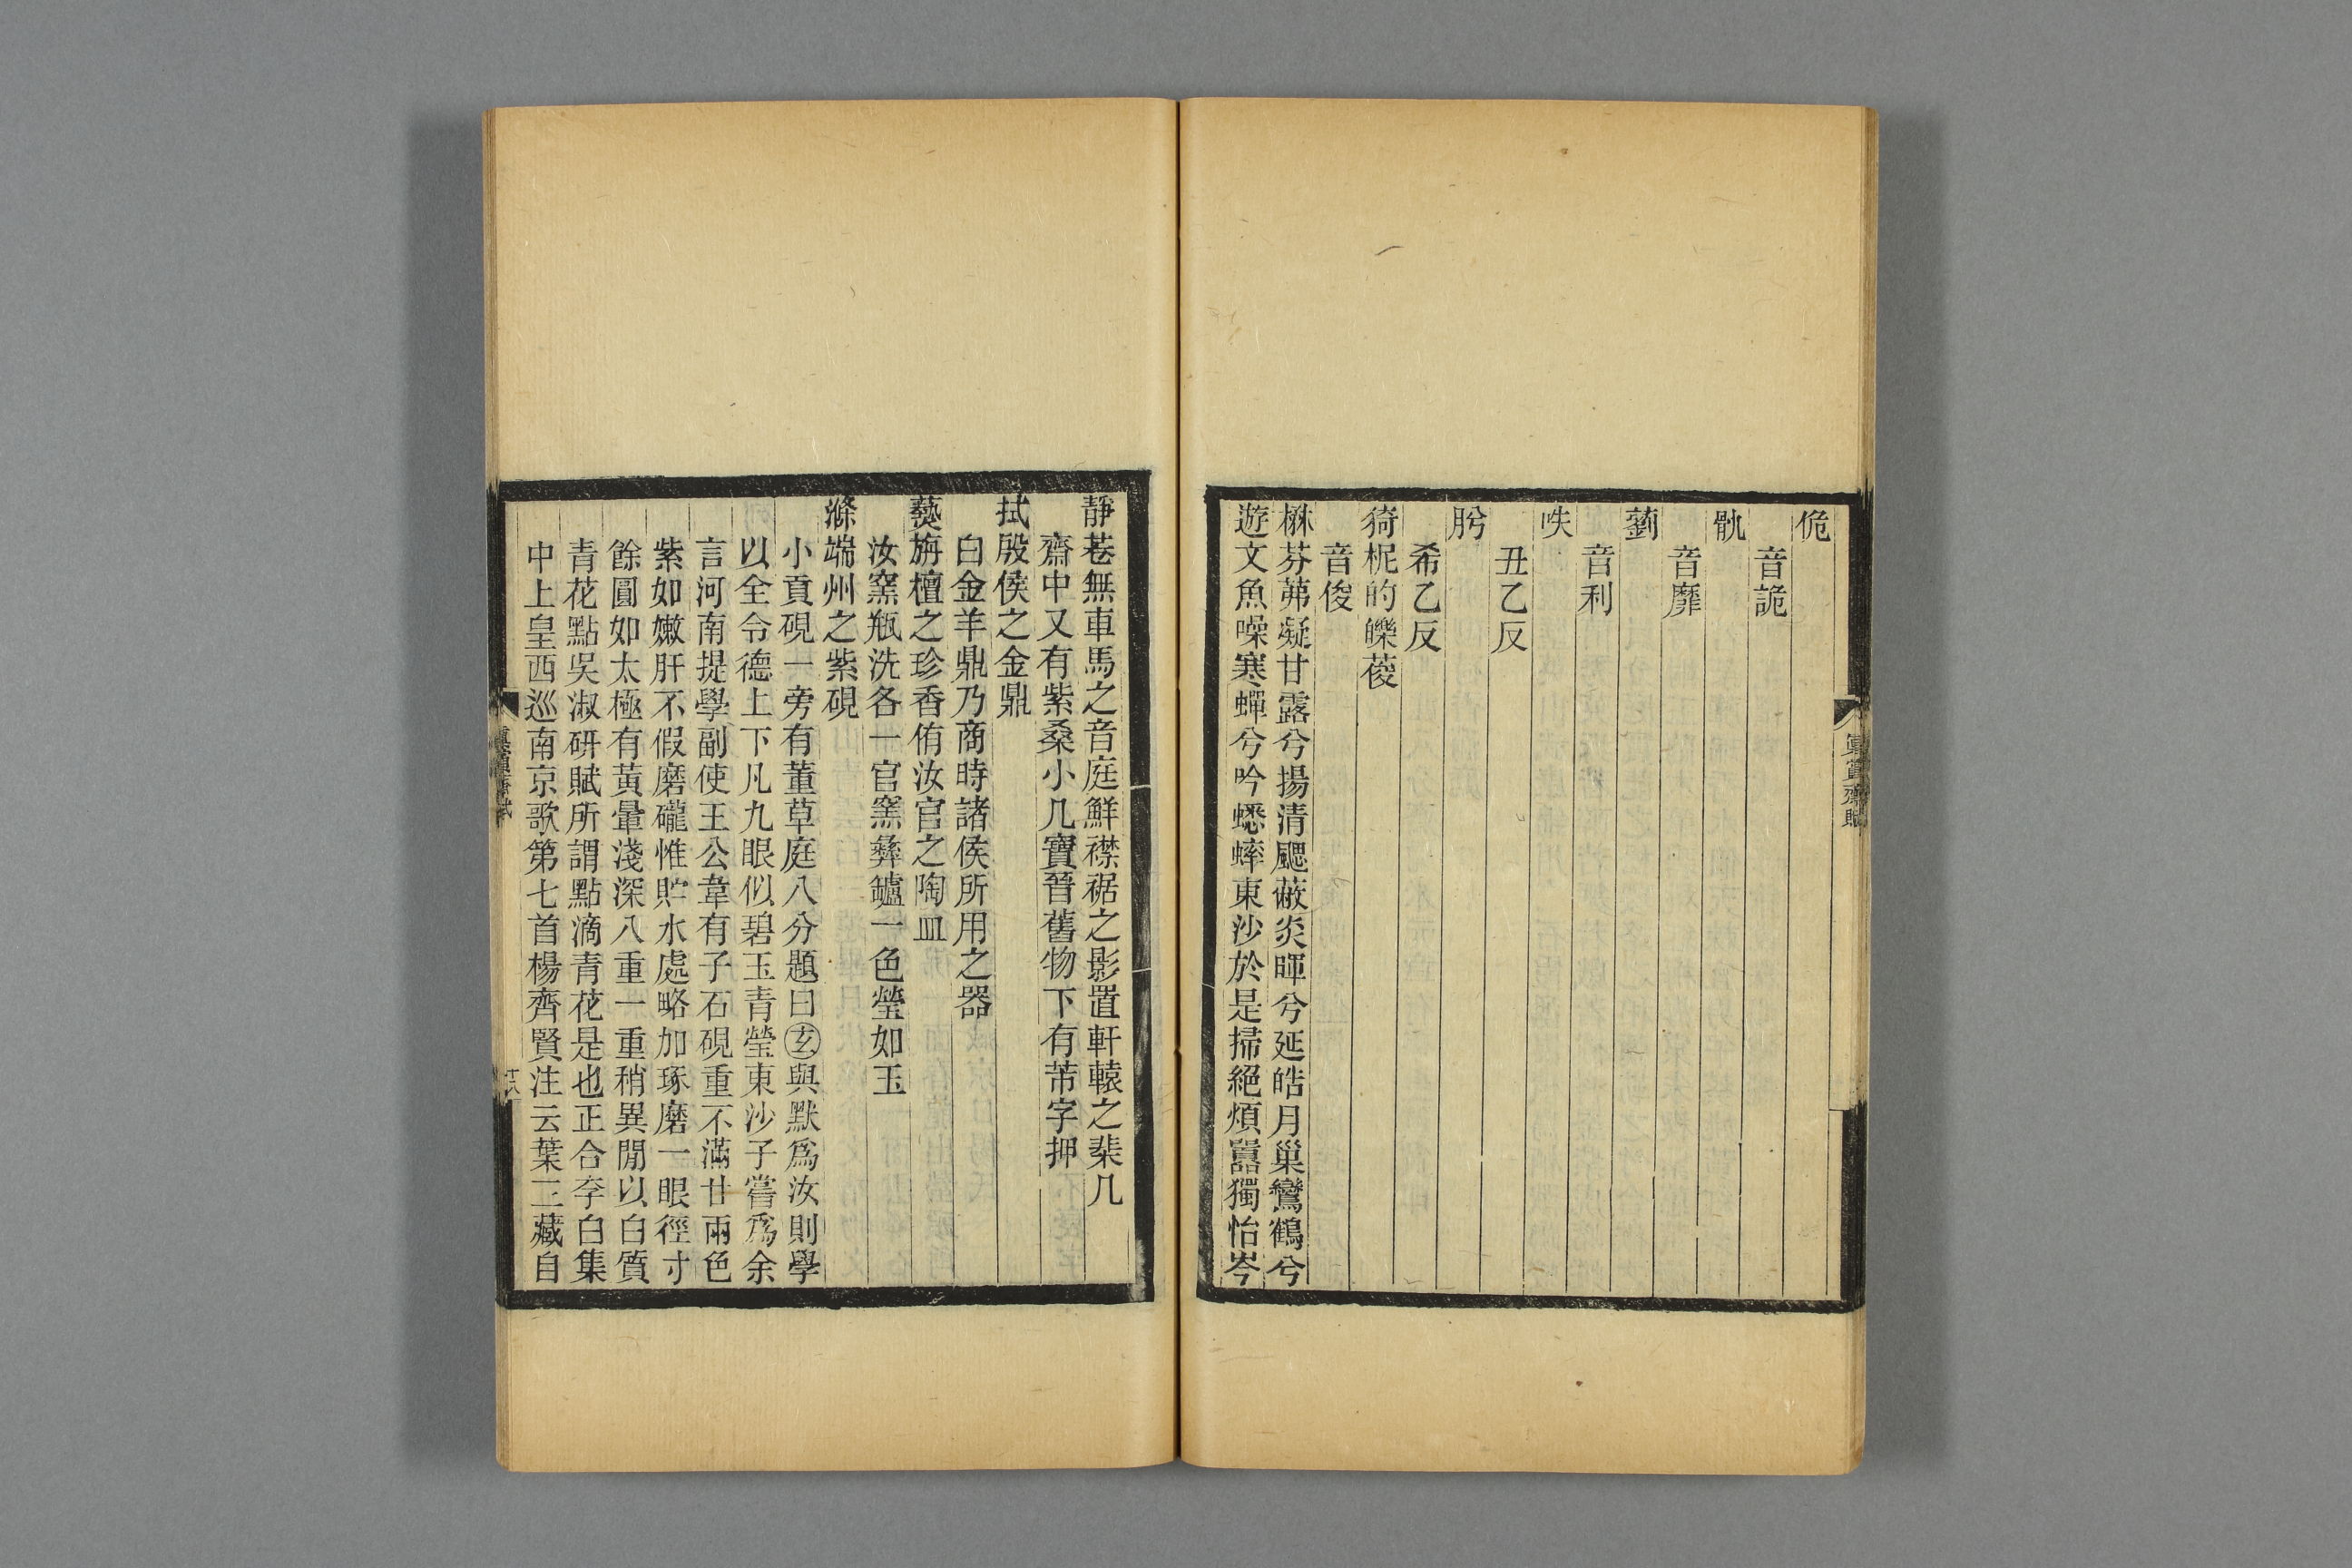 佹
音詭
骩
音靡
藰
音利
咥
丑乙反
肹
希乙反
猗柅的皪葰
音俊
楙芬茀凝甘露兮揚清颸蔽炎暉兮延皓月巢鸞鶴兮
遊文魚噪寒蟬兮吟蟋蟀東沙於是掃絕煩囂獨怡岑
真賞齋賦
靜巷無車馬之音庭鮮襟裾之影置軒轅之棐几
齋中又有紫桑小几寶晉舊物下有芾字押
拭殷侯之金鼎
白金羊鼎乃商時諸侯所用之器
爇旃檀之珍香侑汝官之陶皿
汝窯瓶洗各一官窯彝鑪一色瑩如玉
滌端州之紫硯
小貢硯一旁有董草庭八分題曰玄與默爲汝則學
以全令德上下凡九眼似碧玉青瑩東沙子嘗爲余
言河南提學副使王公韋有子石硯重不滿廿兩色
紫如嫩肝不假磨礲惟貯水處略加琢磨一眼徑寸
餘圓如太極有黃暈淺深八重一重稍異閒以白質
青花點吳淑硏賦所謂點滴青花是也正合李白集
中上皇西巡南京歌第七首楊齊賢注云葉三藏自
真賞齋賦
十六